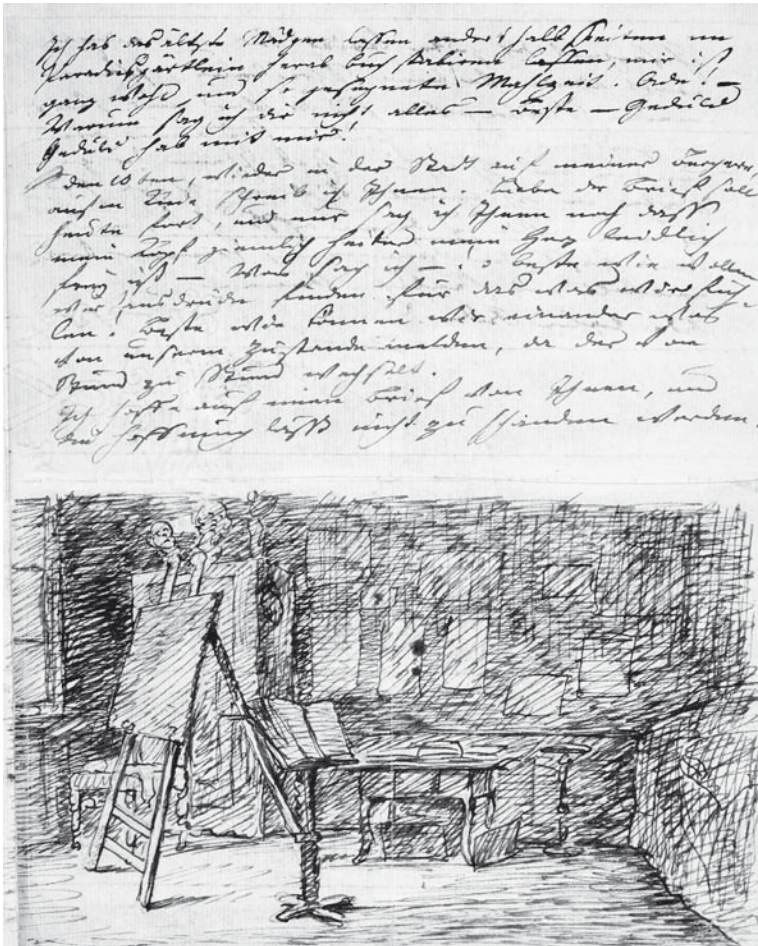 Ich hab das ältste Mädgen lassen anderthalb Seiten im
Paradisgärtlein herab buch stabiren lassen, mir ist
ganz wohl, und so gesegnete Mahlzeit. Ade! —
Warum sag ich dir nicht alles — Beste — Geduld
Geduld hab mit mir!
den 10ten, wieder in der Stadt auf meiner Bergere,
aufm Knie schreib ich Ihnen. Liebe der Brief soll
heute fort, und nur sag ich Ihnen noch dass
mein Kopf ziemlich heiter mein Herz leidlich
frey ist — Was sag ich —! o beste wie wollen
wir Ausdrücke finden für das was wir füh-
len! Beste wie können wir einander was
von unserm Zustande melden, da der von
Stund zu Stund wechselt.
Ich hoffe auf einen Brief von Ihnen, und
die Hoffnung lässt nicht zu schanden werden.